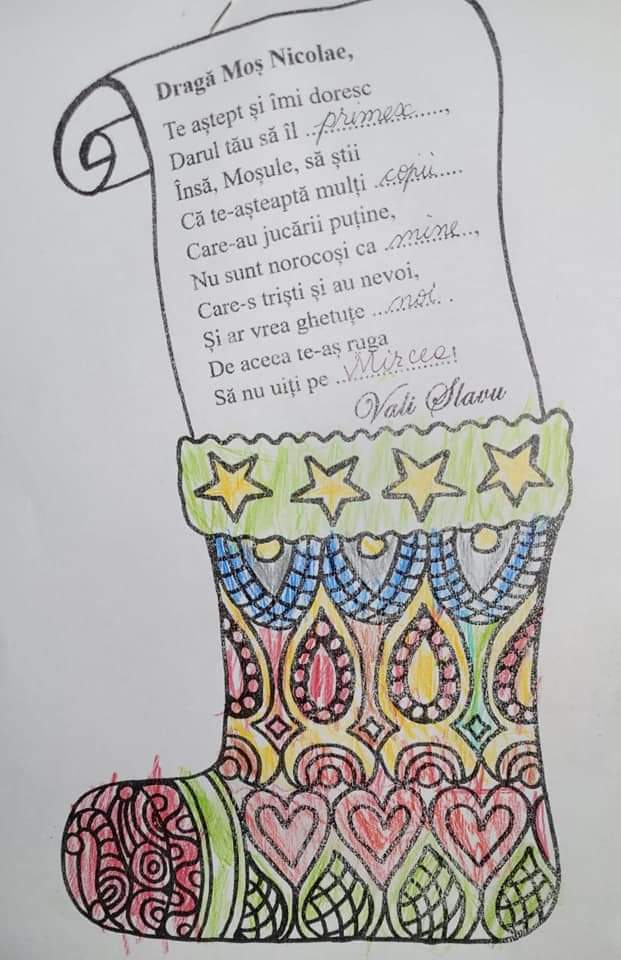 Dragă Moș Nicolae,
Te aștept și îmi doresc
Darul tău să îl primesc,
Însă, Moșule, să știi
Că te-așteaptă mulți copii
Care-au jucării puține,
Nu sunt norocoși ca mine,
Care-s triști și au nevoi,
Și ar vrea ghetuțe noi.
De aceea te-aș ruga
Să nu uiți pe Mircea!
Vali Slavu